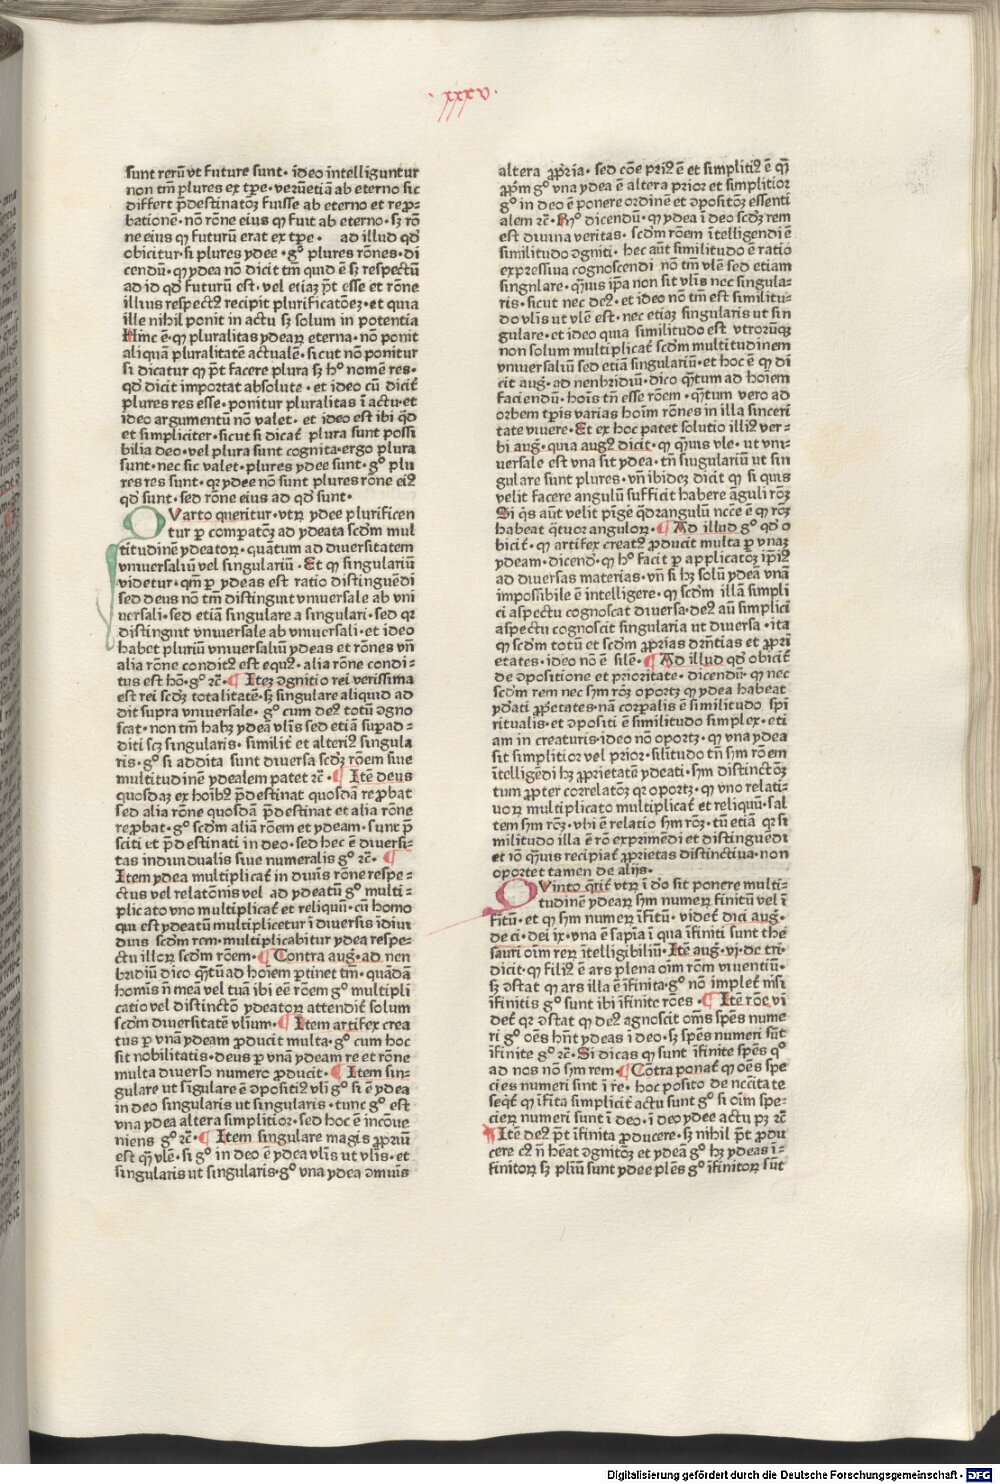 · xxxv ·
sunt rerū vt future sunt· ideo intelliguntur
non tm̄ plures ex tp̄e· verūetiā ab eterno sic
differt p̄destinatoꝫ fuisse ab eterno et rep̄ꝛ-
bationē· nō rōne eius ꝙ fuit ab eterno· sꝫ rō
ne eius ꝙ futurū erat ex tp̄e· ad illud qd̓
obicitur· si plures ydee· gͦ plures rōnes· di
cendū· ꝙ ydea nō dicit tm̄ quid ē sꝫ respectū
ad id qd̓ futurū est· vel etiaꝫ p̄t esse et rōne
illius respectꝰ recipit plurificatōeꝫ· et quia
ille nihil ponit in actu sꝫ solum in potentia
Hinc ē· ꝙ pluralitas ydeaꝝ eterna· nō ponit
aliquā pluralitatē actualē· sicut nō ponitur
si dicatur ꝙ p̄t facere plura sꝫ hͦ nomē res·
qd̓ dicit importat absolute· et ideo cū dicit̄
plures res esse· ponitur pluralitas ī actu· et
ideo argumentū nō valet· et ideo est ibi q̄d
et simpliciter· sicut si dicat̄ plura sunt possi
bilia deo· vel plura sunt cognita· ergo plura
sunt· nec sic valet· plures ydee sunt· gͦ plu
res res sunt· qꝛ ydee nō sunt plures rōne eiꝰ
qd̓ sunt· sed rōne eius ad qd̓ sunt·
QVarto queritur· vtꝝ ydee plurificen
tur ꝑ compatoꝫ ad ydeata scd̓m mul
titudinē ydeatoꝝ· quātum ad diuersitatem
vniuersaliū vel singulariū· Et ꝙ singulariū
videtur· qm̄ ꝑ ydeas est ratio distinguēdi
sed deus nō tm̄ distingꝉt vniuersale ab vni
uersali· sed etiā singulare a singulari· sed qꝛ
distingꝉt vniuersale ab vniuersali· et ideo
habet pluriū vniuersaliū ydeas et rōnes vn̄
alia rōne conditꝰ est equꝰ· alia rōne condi-
tus est hō· gͦ ꝛē· ¶ Iteꝫ ꝯgnitio rei verissima
est rei scd̓ꝫ totalitatē· sꝫ singulare aliquid ad
dit supra vniuersale· gͦ cum deꝰ totū ꝯgno
scat· non tm̄ habꝫ ydeā vl̓is sed etiā sup̄ad-
diti scꝫ singularis· simil̓it̄ et alteriꝰ singula
ris· gͦ si addita sunt diuersa scd̓ꝫ rōem siue
multitudinē ydealem patet ꝛē· ¶ Itē deus
quosdaꝫ ex hoībꝰ p̄destinat quosdā rep̄bat
sed alia rōne quosdā p̄destinat et alia rōne
rep̄bat· gͦ scd̓m aliā rōem et ydeam· sunt p̄
sciti et p̄destinati in deo· sed hec ē diuersi-
tas indiuidualis siue numeralis gͦ ꝛē· ¶
Item ydea multiplicat̄ in diuīs rōne respe-
ctus vel relatōnis vel ad ydeatū gͦ multi-
plicato vno multiplicat̄ et reliquū· cū homo
qui est ydeatū multiplicetur ī diuersis īdiui
duis scd̓m rem· multiplicabitur ydea respe-
ctu illoꝝ scd̓m rōem· ¶ Contra aug̓· ad nen
bridiū dico q̄tū ad hoīem ꝑtinet tm̄· quādā
homīs n̄ meā vel tuā ibi eē rōem gͦ multipli
catio vel distinctō ydeatoꝝ attendit̄ solum
scd̓m diuersitatē vl̓ium· ¶ Item artifex crea
tus ꝑ vnā ydeam ꝓducit multa· gͦ cum hoc
sit nobilitatis· deus ꝑ vnā ydeam re et rōne
multa diuerso numero ꝓducit· ¶ Item sin-
gulare ut sīgulare ē ꝯpositiꝰ vl̓i gͦ si ē ydea
in deo singularis ut singularis· tunc gͦ est
vna ydea altera simplitior· sed hoc ē incōue
niens gͦ ꝛē· ¶ Item singulare magis ꝓpriū
est q̄ꝫ vl̓e· si gͦ in deo ē ydea vl̓is ut vl̓is· et
singularis ut singularis· gͦ vna ydea ī diuīs
altera ꝓpria· sed cōe priꝰ ē et simplitiꝰ ē q̄ꝫ
ꝓpͥm gͦ vna ydea ē altera prior et simplitior
gͦ in deo ē ponere ordinē et ꝯpositoꝫ essenti
alem ꝛē· Rͦ dicendū· ꝙ ydea ī deo scd̓ꝫ rem
est diuina veritas· scd̓m rōem ītelligendi ē
similitudo ꝯgniti· hec aūt similitudo ē ratio
expressiua cognoscendi nō tm̄ vl̓e sed etiam
singulare· q̄uis ip̄a non sit vl̓is nec singula-
ris· sicut nec deꝰ· et ideo nō tm̄ est similitu-
do vl̓is ut vl̓e est· nec etiaꝫ singularis ut sin
gulare· et ideo quia similitudo est vtrorūqꝫ
non solum multiplicat̄ scd̓m multitudinem
vniuersaliū sed etiā singulariū· et hoc ē ꝙ di
cit aug̓· ad nenbridiū· dico q̄tum ad hoīem
faciendū· hoīs tn̄ esse rōem· q̄tum vero ad
orbem tp̄ris varias hoīm rōnes in illa sinceri
tate viuere· Et ex hoc patet solutio illiꝰ ver-
bi aug̓· quia augꝰ dicit· ꝙ q̄uis vle· ut vni-
uersale est vna sit ydea· tn̄ singulariū ut sin
gulare sunt plures· vn̄ ibideꝫ dicit ꝙ si quis
velit facere angulū sufficit habere āguli rōꝫ
Si q̄s aūt velit pīge q̄drangulū ncc̄e ē ꝙ rōꝫ
habeat q̄tuor anguloꝝ· ¶ Ad illud gͦ qd̓ o
bicit̄· ꝙ artifex creatꝰ ꝓducit multa ꝑ vnaꝫ
ydeam· dicend̄· ꝙ hͦ facit ꝑ applicatoꝫ ip̄iꝰ
ad diuersas materias· vn̄ si hꝫ solū ydeā vnā
impossibile ē intelligere· ꝙ scd̓m illā simpli
ci aspectu cognoscat diuersa· deꝰ aūt simplici
aspectu cognoscit singularia ut diuersa· ita
ꝙ scd̓m totū et scd̓m ꝓprias dr̄ntias et ꝓpri
etates· ideo nō ē silē· ¶ Ad illud qd̓ obicit̄
de ꝯpositione et prioritate· dicendū· ꝙ nec
scd̓m rem nec ẜm rōꝫ oportꝫ ꝙ ydea habeat
ydeati ꝓpͥetates· nā corꝑalis ē similitudo spī
ritualis· et ꝯpositi ē similitudo simplex· eti
am in creaturis· ideo nō oportꝫ· ꝙ vna ydea
sit simplitior vel prior· sil̓itudo tn̄ ẜm rōem
ītelligēdi hꝫ ꝓprietatē ydeati· ẜm distinctoꝫ
tum ꝓpter correlatoꝫ qꝛ oportꝫ· ꝙ vno relati-
uoꝝ multiplicato multiplicat̄ et reliquū· sal
tem ẜm rōꝫ· vbi ē relatio ẜm rōꝫ· tū etiā qꝛ si
militudo illa ē rō exprimēdi et distinguēdi
et iō q̄uis recipiat̄ ꝓprietas distinctiua· non
oportet tamen de alijs·
QVinto q̄rit̄ vtꝝ ī dō sit ponere multi-
tudinē ydeaꝝ ẜm numeꝝ finitū vel ī
fitū· et ꝙ ẜm numeꝝ īfitū· videt̄ dici aug̓·
de ci· dei ix· vna ē sapīa ī qua īfiniti sunt the
sauri oīm reꝝ ītelligibiliū· Itē aug̓· vj· de tri·
dicit· ꝙ filiꝰ ē ars plena oīm rōm viuentiū·
sꝫ ꝯstat ꝙ ars illa ē īfinita· gͦ nō implet̄ nisi
īfinitis gͦ sunt ibi īfinite rōes· ¶ Itē rōe vi
det̄ qꝛ ꝯstat ꝙ deꝰ agnoscit oīms sp̄es nume
ri gͦ oēs hn̄t ydeas ī deo· sꝫ sp̄es numeri sūt
īfinite gͦ ꝛē· Si dicas ꝙ sunt īfinite sp̄es qͦ
ad nos nō ẜm rem· ¶ Cōtra ponat̄ ꝙ oēs spe
cies numeri sint ī re· hoc posito de nccītate
seqt̄ ꝙ īfita simplicit̄ actu sunt gͦ si oīm spe-
cieꝝ numeri sunt ī deo· ī deo ydee actu pꝫ ꝛē
¶ Itē deꝰ p̄t īfinita ꝓducere· sꝫ nihil p̄t ꝓdu
cere cꝰ n̄ heat ꝯgnitōꝫ et ydeā gͦ hꝫ ydeas ī-
finitoꝝ sꝫ pliū sunt ydee ples̄ gͦ īfinitoꝝ sūt
Digitalisierung gefördert durch die Deutsche Forschungsgemeinschaft - DFG